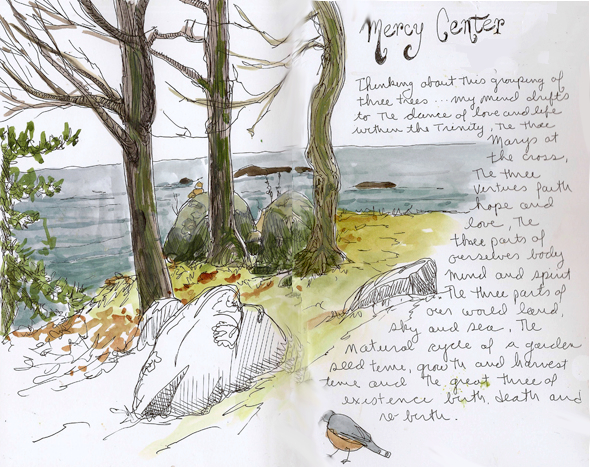 Mercy Center
Thinking about this grouping of
three trees ... my mind drifts
to the dance of love and life
within the Trinity, the three
Marys at
the cross,
the three
virtues faith
hope and
love, the
three parts of
ourselves body
mind and spirit
The three parts of
our world land,
sky and sea. The
natural cycle of a garden
seed time, growth and harvest
time and the great three of
existence birth, death and
re-birth.